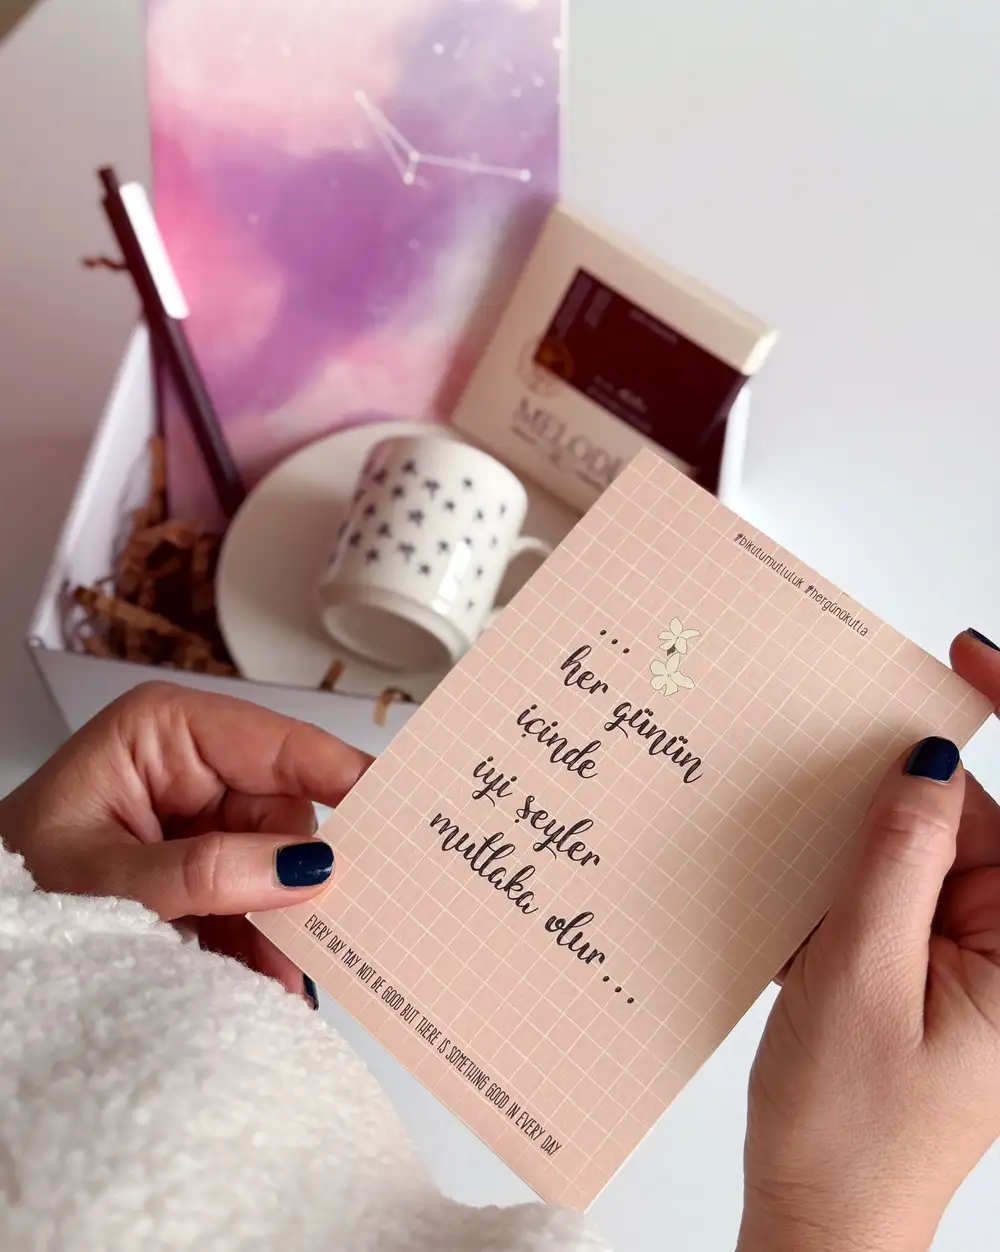 #bikutumutluluk #hergünükutla
...
her günün
içinde
iyi şeyler
mutlaka olur...
EVERY DAY MAY NOT BE GOOD BUT THERE IS SOMETHING GOOD IN EVERY DAY